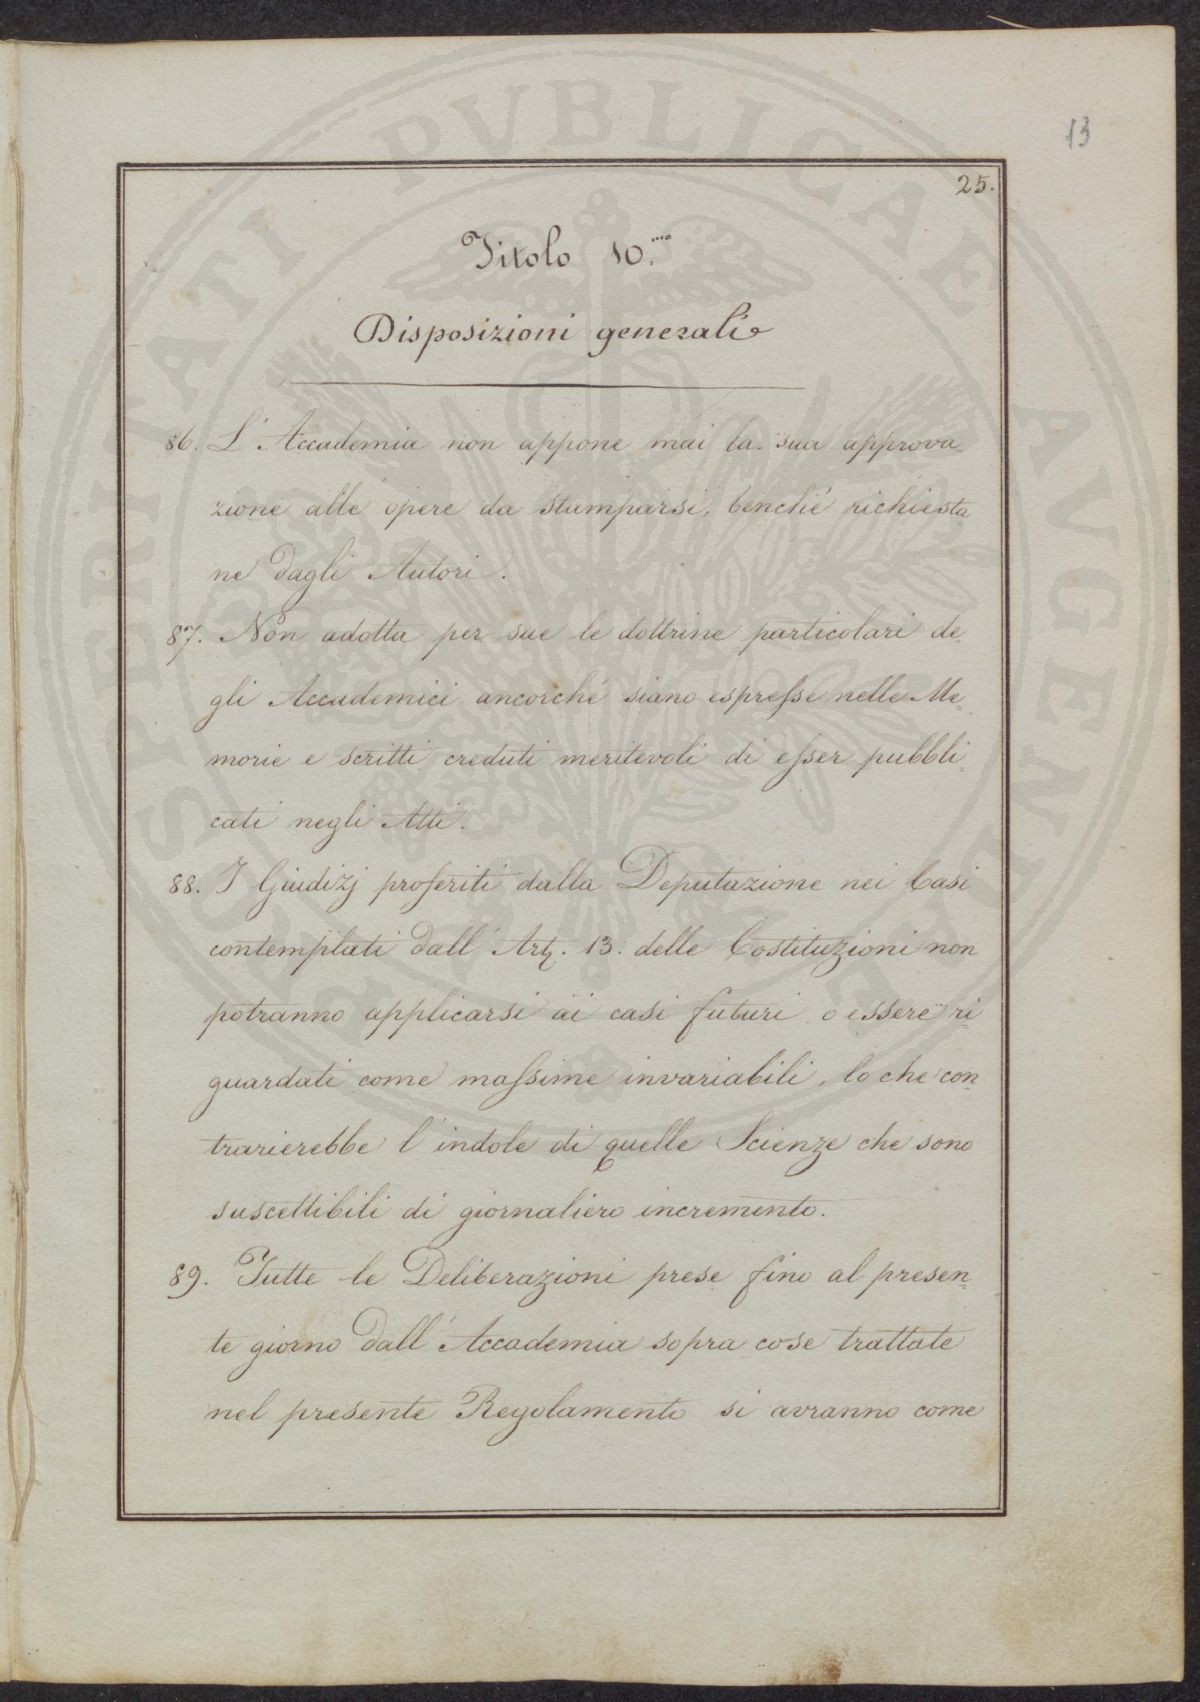 13
25.
Titolo 10.mo
Disposizioni generali
86. L'Accademia non appone mai la sua approva-
zione alle opere da stamparsi, benchè richiesta
ne dagli Autori.
87. Non adotta per sue le dottrine particolari de-
gli Accademici ancorché siano espresse nelle Me-
morie e scritti creduti meritevoli di esser pubbli-
cati negli Atti.
88. I Giudizj proferiti dalla Deputazione nei Casi
contemplati dall'Art. 13. delle Costituzioni non
potranno applicarsi ai casi futuri o essere ri
guardati come massime invariabili, lo che con-
trarierebbe l'indole di quelle Scienze che sono
suscettibili di giornaliero incremento.
89. Tutte le Deliberazioni prese fino al presen-
te giorno dall'Accademia sopra cose trattate
nel presente Regolamento si avranno come